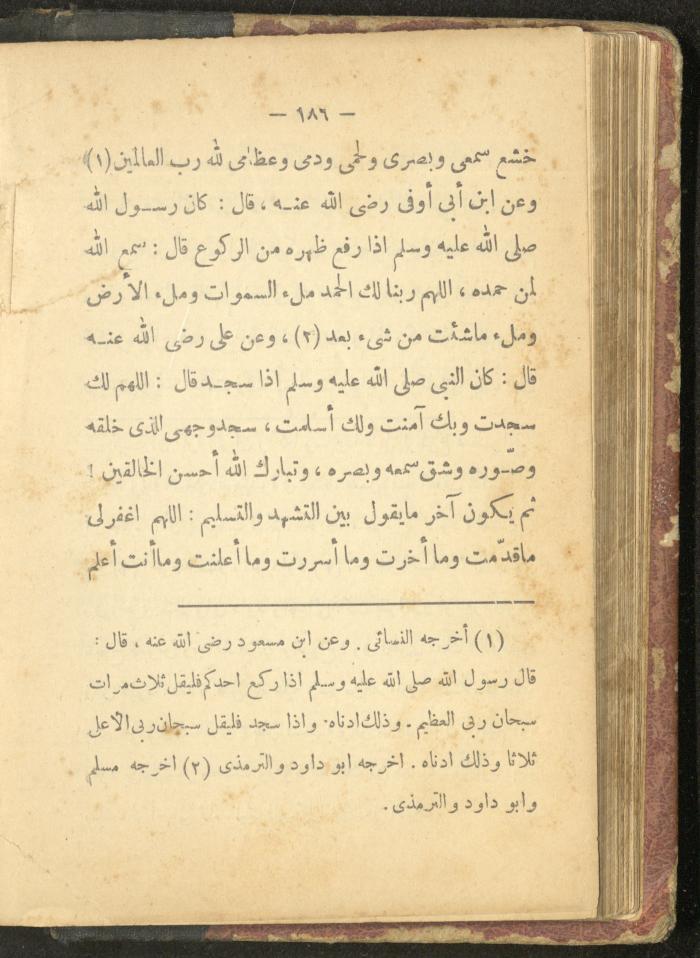 — ١٨٦ —
خشع سمعى وبصرى ولحمى ودمى وعظامى لله رب العالمين (١)
وعن ابن أبى أوفى رضى الله عنه ، قال : كان رسول الله
صلى الله عليه وسلم اذا رفع ظهره من الركوع قال : سمع الله
لمن حمده ، اللهم ربنا لك الحمد ملء السموات وملء الأرض
وملء ماشئت من شىء بعد (٢) ، وعن على رضى الله عنه
قال : كان النبى صلى الله عليه وسلم اذا سجد قال : اللهم لك
سجدت وبك آمنت ولك أسلمت ، سجد وجهى الذى خلقه
وصّوره وشق سمعه وبصره ، وتبارك الله أحسن الخالقين !
ثم يكون آخر مايقول بين التشهد والتسليم : اللهم اغفرلى
ماقدّمت وما أخرت وما أسررت وما أعلنت وماأنت أعلم
(١) أخرجه النسائى . وعن ابن مسعود رضى الله عنه ، قال :
قال رسول الله صلى الله عليه وسلم اذا ركع احدكم فليقل ثلاث مرات
سبحان ربى العظيم . وذلك ادناه . واذا سجد فليقل سبحان ربى الاعلى
ثلاثا وذلك ادناه . اخرجه ابو داود والترمذى (٢) اخرجه مسلم
وابو داود والترمذى .